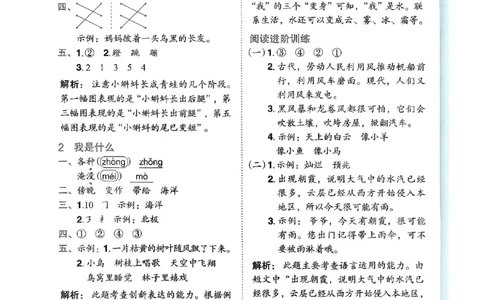 四、
示例：妈妈披着一头乌黑的长发。
五、1.② 2.蹬 跳 蹦
3.2 1 3 5 4
解析： 注意小蝌蚪长成青蛙的几个阶段。
第一幅图表现的是“小蝌蚪长出后腿”，第
三幅图表现的是“小蝌蚪长出前腿”，第五
幅图表现的是“小蝌蚪的尾巴变短”。
2 我是什么
一、各种(zhǒng) zhǒng
淹没(méi) mò
二、傍晚 变作 带给 海洋
三、1.10 示例：海洋
2.3 示例：北极
四、① ② ④ ③
五、示例：1.一片枯黄的树叶随风飘了下来。
2.小鸟 树枝上唱歌 天空中飞翔
鸟窝里睡觉 林子里嬉戏
解析： 此题考查创新表达的能力。根据例
“我”的三个“变身”可知，“我”是水。联
系生活，水还可以变成云、雾、冰、霜等。
阅读进阶训练
(一)1.③ ④ ② ①
2.古代，劳动人民利用风推动帆船前
行，利用风车磨面。现代，人们又
利用风来发电。
3.黑风暴和龙卷风都很可怕，它们会
吹散土壤，吹垮房屋，掀翻汽车。
4.示例：天上的白云 像小羊
像小鱼 像小马
(二)1.示例：灿烂 预兆
2.出现朝霞，说明大气中的水汽已经
很多，云层已经从西方开始侵入本
地区，所以今天很可能有雨。
3.示例： 爷爷，今天有朝霞，很可能
有雨。您出门记得带上雨伞，可不
要被雨淋着哦。
解析： 此题主要考查语言运用的能力。由
短文中“出现朝霞，说明大气中的水汽已
经很多，云层已经从西方开始侵入本地区，